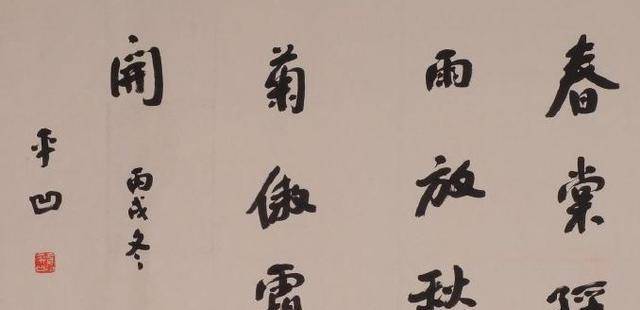 春棠經
雨放秋
菊傲霜
開
丙戌冬
平凹